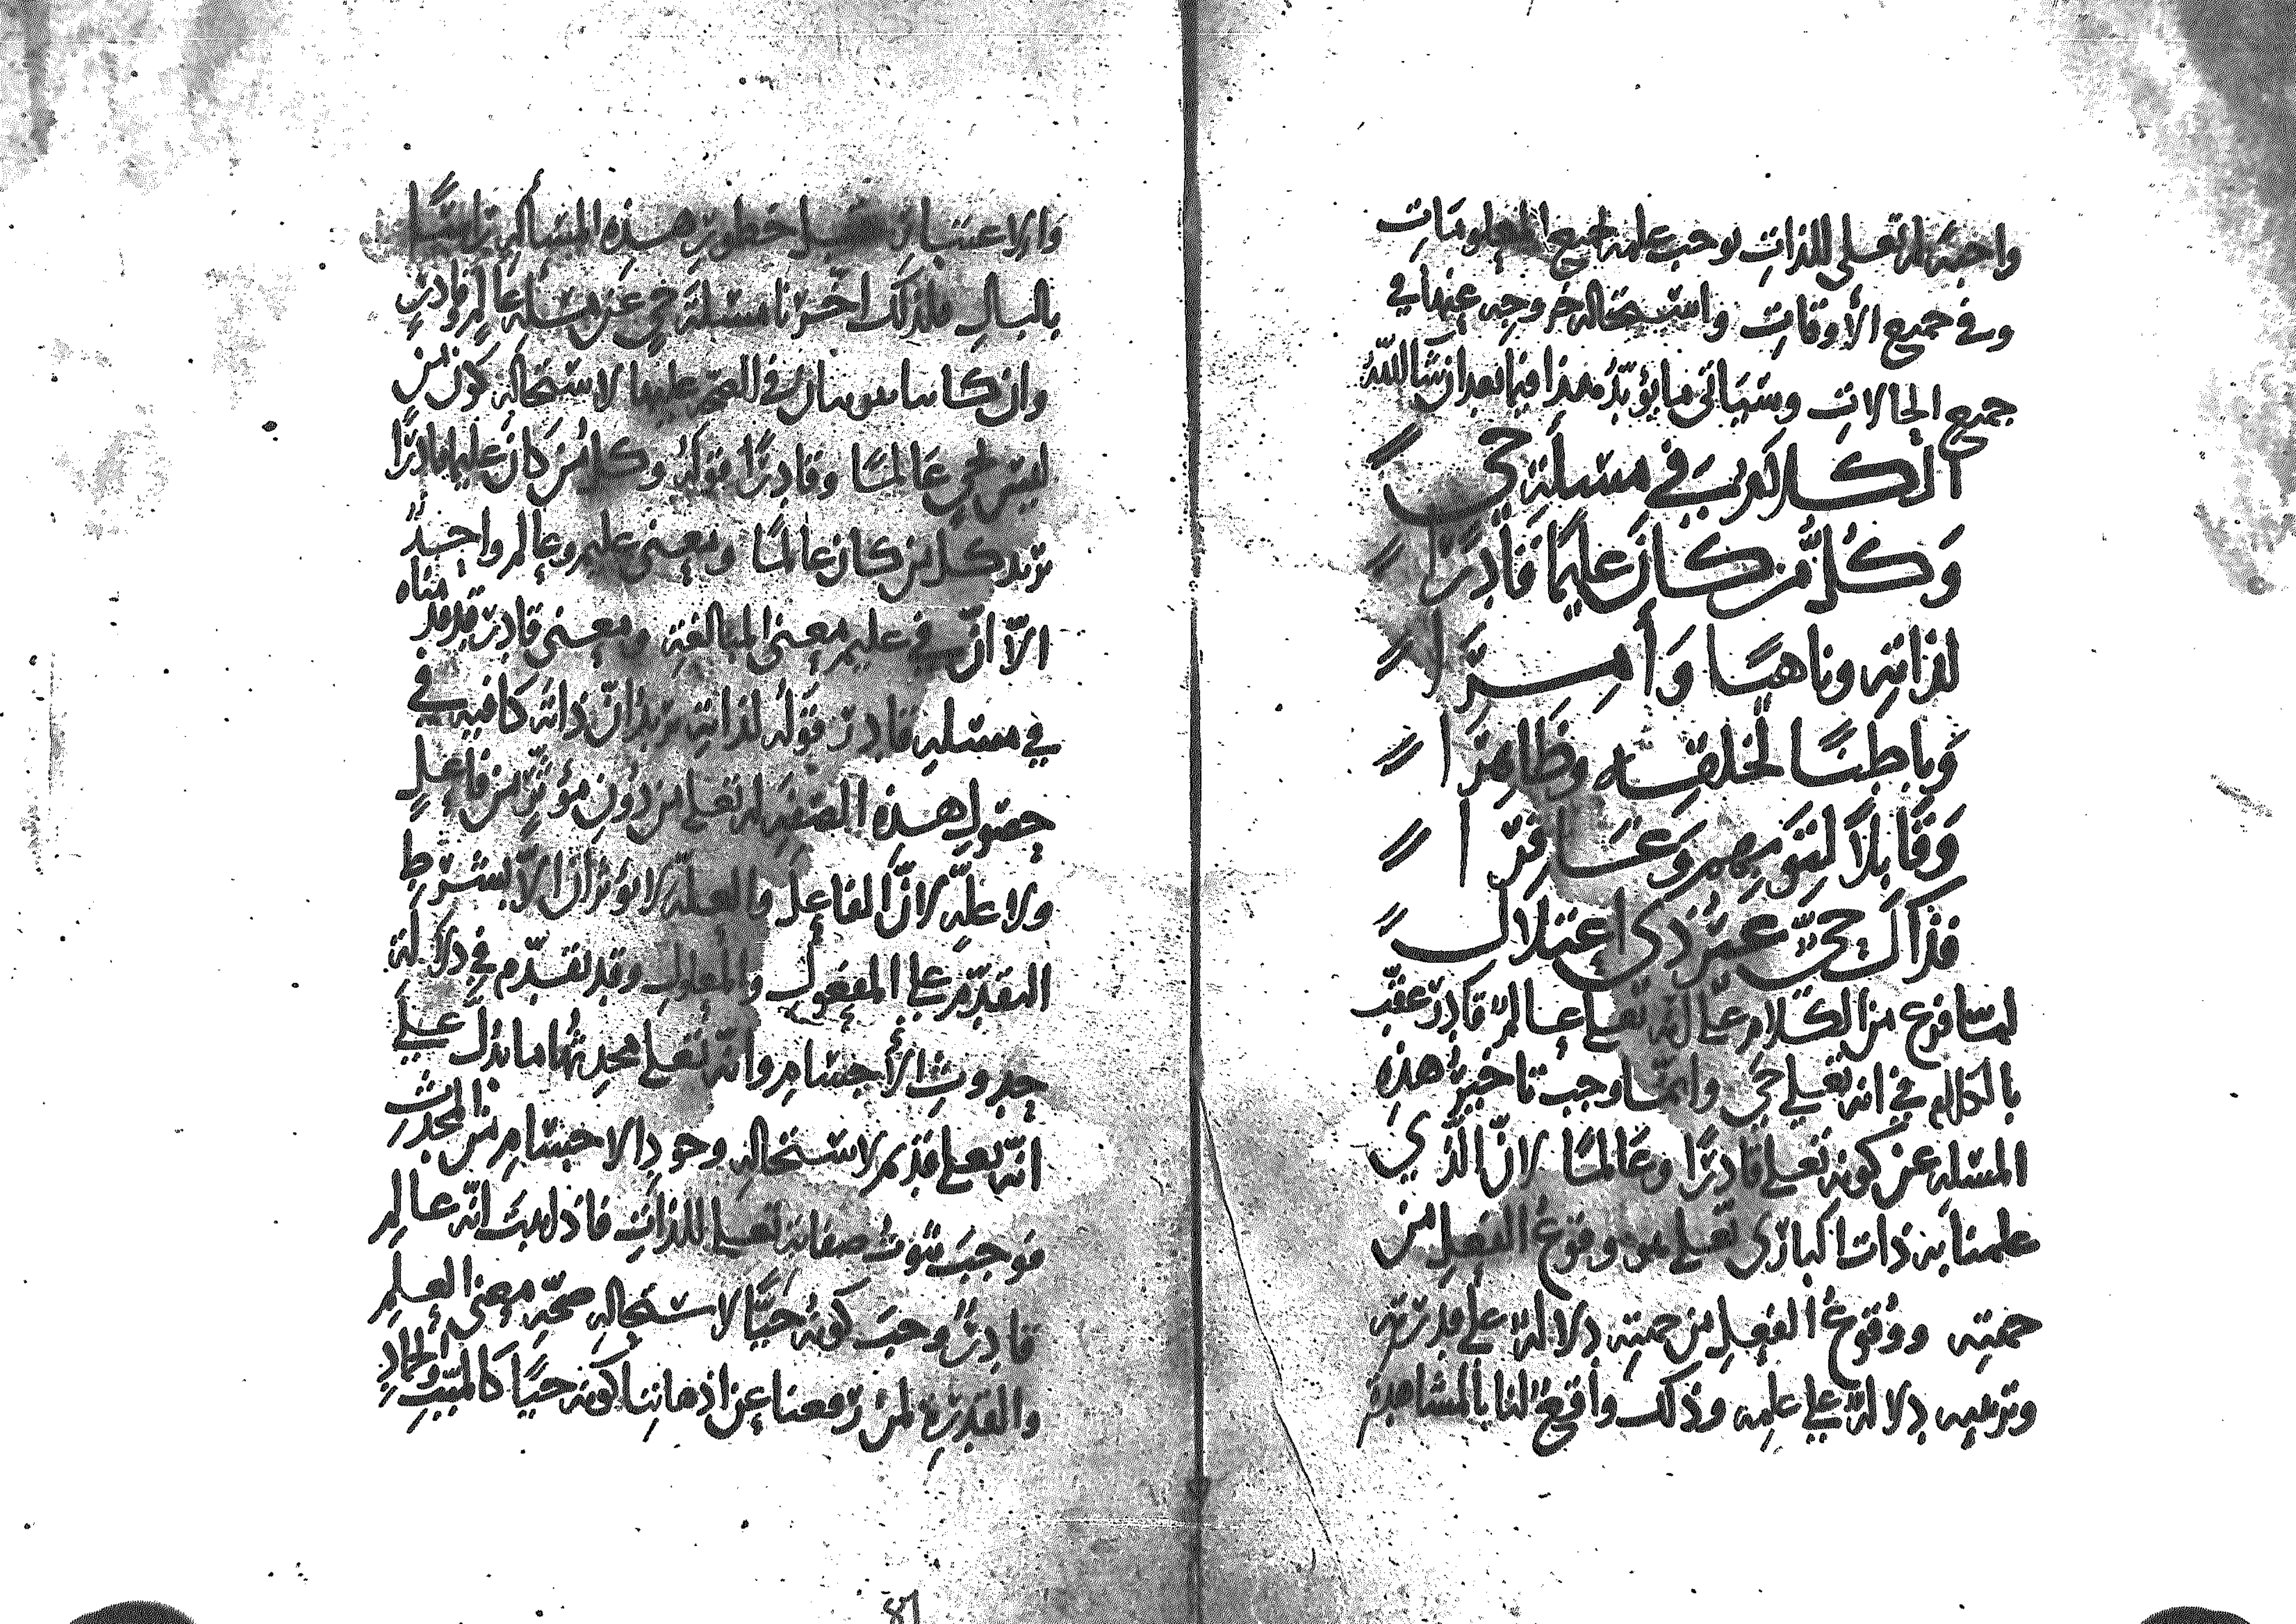 واجبة له تعلى للذات توجب علمه بجميع المعلومات
وفي جميع الأوقات واستحالة خروجه عنها في
جميع الحالات وسيأتي ما يؤيد هذا فيما بعد ان شا الله
الكلام في مسئلة حي
وَكلُّ من كانَ عليمًا قادِرَا
لذاتِهِ وناهيًا وَأمِرَا
وَباطِنًا لخلقِه وظاهِرَا
وَقَابلًا لتَوبِهم وَغَافِرَا
فذاكَ حيٌّ غيرُ ذي اعتلال
لمّا فرغ من الكلام على انه تعلى عالم قادر عقّب
بالكلام في انه تعلى حي وانما وجب تاخير هذه
المسئلة عن كونه تعلى قادرًا وعالمًا لانّ الذي
علمنا به ذات الباري تعلى هو وقوع الفعل من
جهته ووقوع الفعل من جهته دلالة على قدرته
وترتيبه دلالة على علمه وذلك واقع لنا بالمشاهدة
والاعتبار قبل خطور هذه المسألة
بالبال فلذلك اخّرنا مسئلة حي عن مسئلة عالم وقادر
وان كانتا في الصحة عليها لاستحالة كون من
ليس بحي عالمًا وقادرًا قوله وكل من كان عليما قادرًا
يريد كل من كان عالمًا ومعنى عليم وعالم واحدٌ
الّا انّ في عليم معنى المبالغة ومعنى قادر قد قدمناه
في مسئلة قادر قوله لذاته يريد انّ ذاته كافية في
حصول هذه الصفة له تعلى من دون مؤثر من فاعل
ولا علة لانّ الفاعل والعلّة لا يؤثران الّا بشرط
التقدّم على المفعول والمعلول وقد تقدّم في دلالة
حدوث الأجسام وانه تعلى محدثها ما يدل على
انّه تعلى قديم لاستحالة وجود الاجسام من المحدث
فوجب ثبوت صفاته تعلى للذات فاذا ثبت انّه عالم
قادرٌ وجبَ كونه حيًّا لاستحالة صحّة معنى العلم
والقدرة لمن رفعنا عن اذهاننا كونه حيًا كالميّت والجماد
87